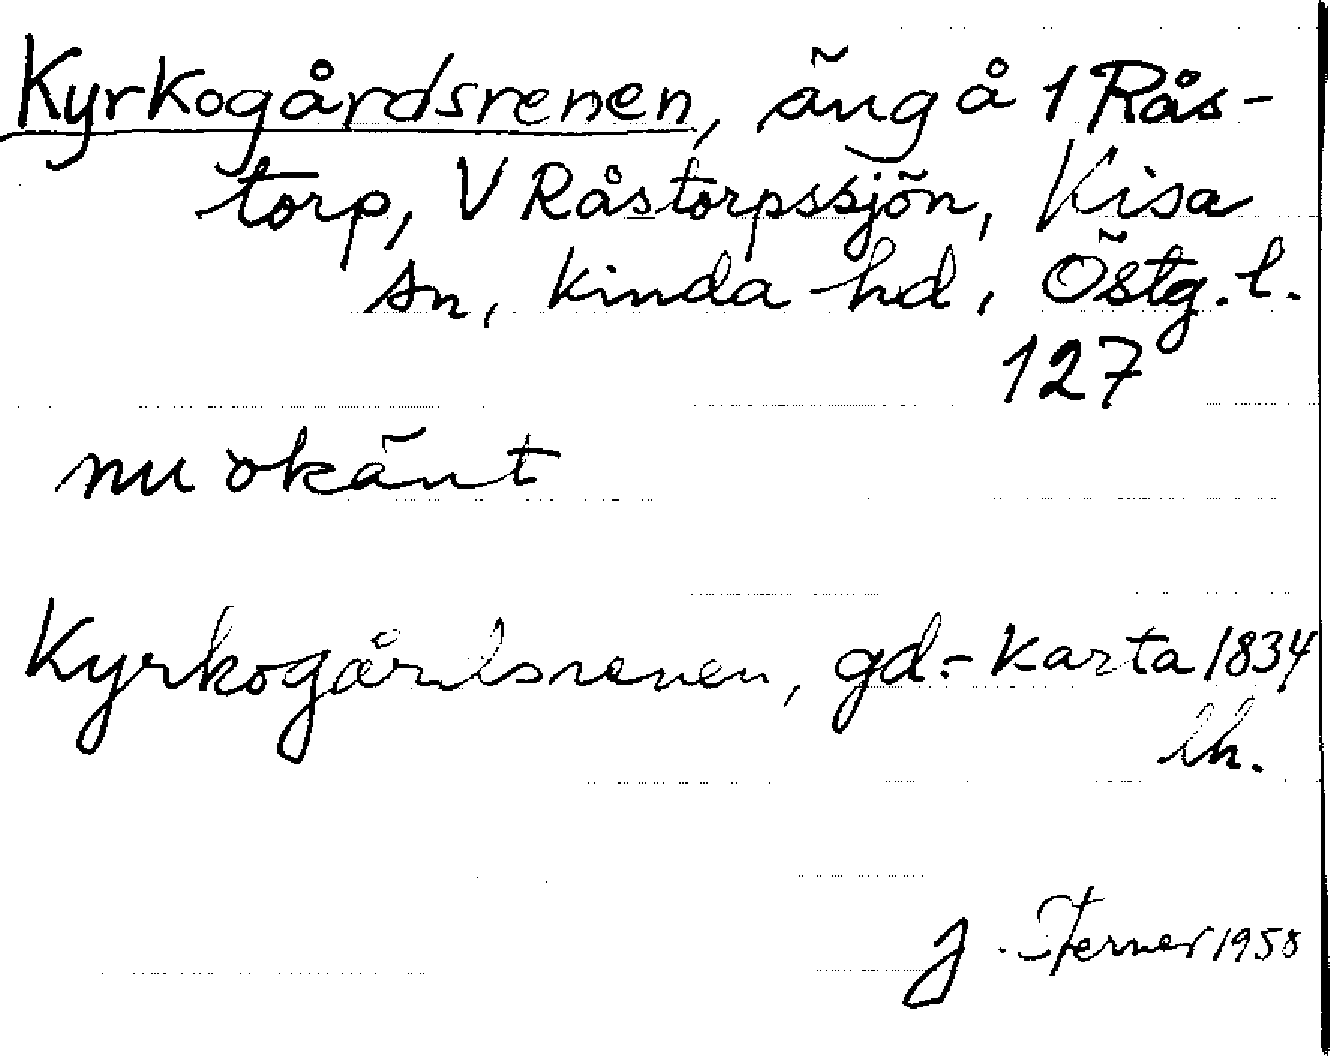 Kyrkogårdsrenen, äng å 1 Rås-
torp, V Råstorpssjön, Kisa
sn, Kinda hd, Östg. l.
127
nu okänt
Kyrkogårdsrenen, gd.- karta 1834
lh.
J. Ferner 1958